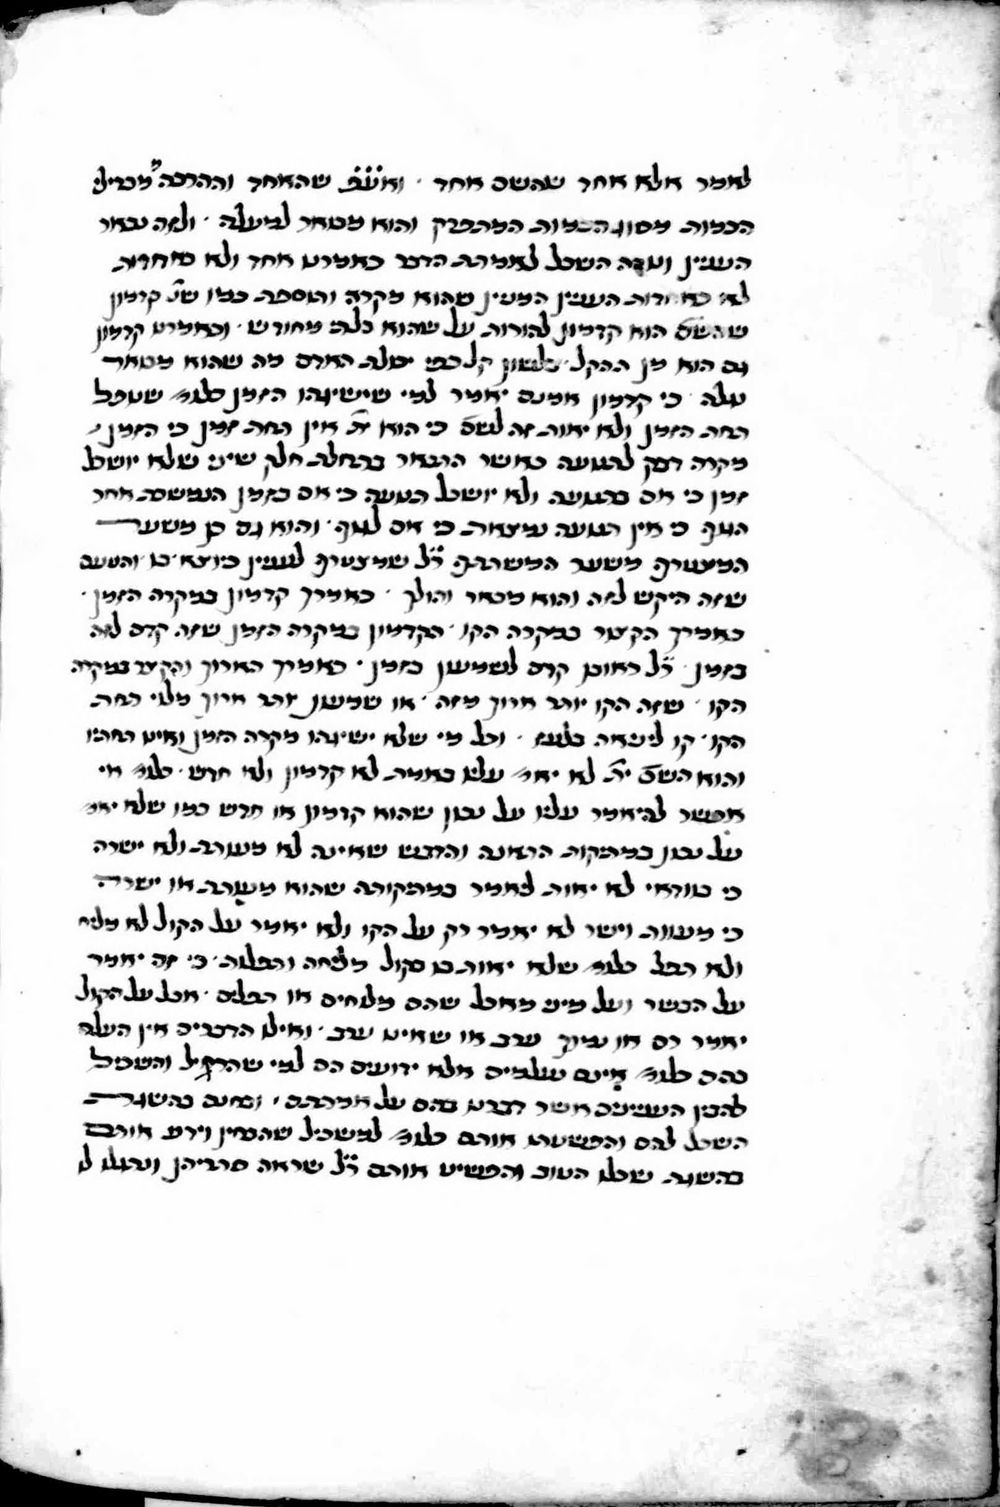 לאמר אלא אחד שהשם אחד · ואע״פ שהאחד וההרבה מבדילי
הכמות מסוג הכמות המתפרק והוא מבואר למעלה · ולזה נבאר
העניין ונורה השכל לאמתת הדבר כאמרנו אחד ולא באחדות
לא באחדות העניין המעיין שהוא מקרה ותוספת כמו שנ׳ קדמון
שהשם הוא קדמון להורות על שהוא בלתי מחודש · וכאמרנו קדמון
גם הוא מן ההקל בלשון קל כפי יכולת האדם מה שהוא מבואר
עלה · כי קדמון אמנם יאמר למי שישיגהו הזמן כלומ׳ שנופל
תחת הזמן ולא יאות זה לשם כי הוא ית׳ אין תחת זמן כי הזמן
מקרה דבק לתנועה כאשר התבאר בתחלת חלק שיני שלא יושכל
זמן כי אם בתנועה ולא יושכל תנועה כי אם בזמן הנמשכת אחר
הגוף כי אין תנועה נמצאת כי אם לגוף · והוא גם כן משער
המצטרף משער המשתתף ר״ל שמצטרף לעניין כיוצא בו · והטעם
שזה היקש לזה והוא מבואר והולך · כאמרך קדמון במקרה הזמן ·
כאמרך הקצור במקרה הקו · הקדמון במקרה הזמן שזה קדם לזה
בזמן · ר״ל ראובן קדם לשמעון בזמן · כאמרך הארוך והקצר במקרה
הקו · שזה הקו יותר ארוך מזה · או שמעון יותר ארוך מלוי תחת
הקו · קו ליניאה בלעז · וכל מי שלא ישיגהו מקרה הזמן ואינו תחתיו
והוא השם ית׳ לא יאמ׳ עליו באמת לא קדמון ולא חדש · כלומ׳ אי
אפשר להיאמר עליו על נכון שהוא קדמון או חדש כמו שלא יאמ׳
על נכון במתקות הראנה והדבש שאינה לא מעוותת ולא ישרה
כי בודאי לא יאות לאמר במתקותה שהוא מעוותת או ישרה
כי מעוות וישר לא יאמר רק על הקו ולא יאמר על הקול לא מליח
ולא תפל כלומ׳ שלא יאות בו בקול מליחה ותפלות · כי זה יאמר
על הבשר ועל מיני מאכל שהם מלוחים או תפלים · אבל על הקול
יאמר רם או נמוך ערב או שאינו ערב · ואילו הדברים אין העלה
בהם כלומ׳ אינם נעלמים אלא ידועים הם למי שהרגיל והשכיל
להבין העניינים אשר דברנו בהם על אמתתם · ובינם בהשגת
השכל להם והפשיטו אותם כלומ׳ למשכיל שהבין וידע אותם
בהשגת שכלו הטוב והפשיט אותם ר״ל שראה סדריהן ונתגלו לו